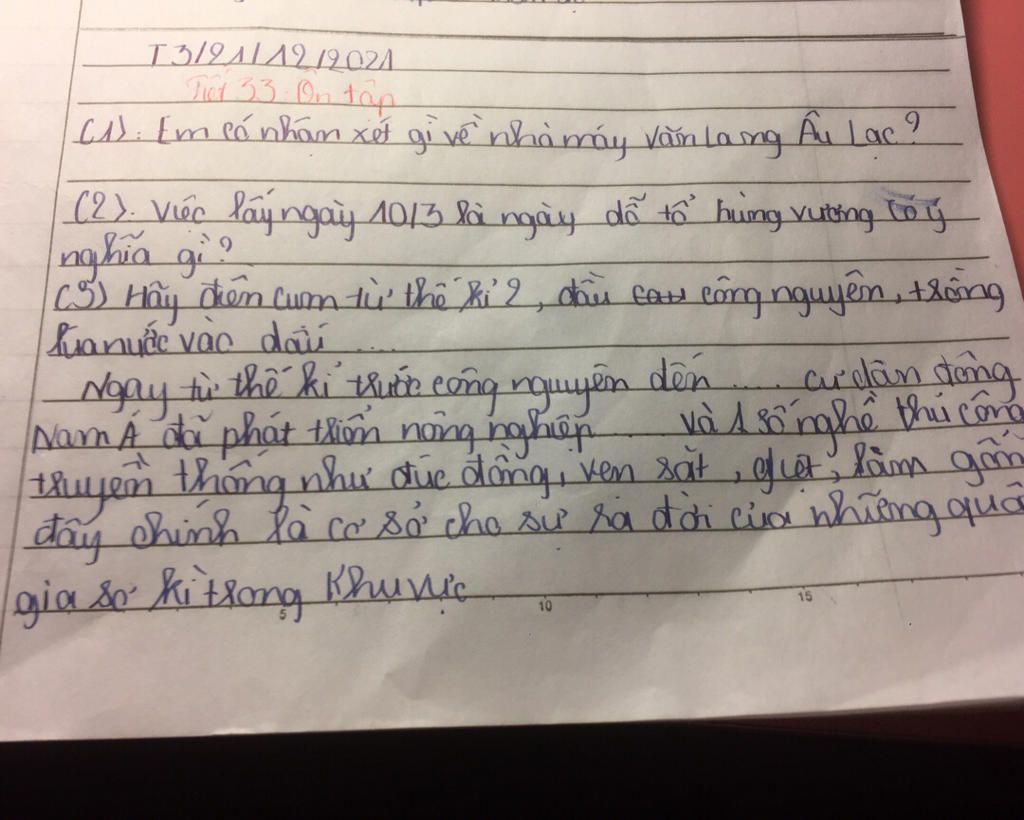 T3/21/12/2021
Tiết 33: Ôn tập
(1). Em có nhâm xét gì về nhà máy văn Lang Âu Lạc?
(2). Việc lấy ngày 10/3 là ngày dỗ tổ hùng vương có ý
nghĩa gì?
(3) Hãy điền cụm từ thế kỉ 2, đầu công nguyên, trồng
lúa nước vào dấu ....
Ngay từ thế kỉ trước công nguyên đến .... cư dân đông
Nam Á đã phát triển nông nghiệp .... và 1 số nghề thủ công
truyền thống như đúc đồng, ren sắt, dệt, làm gốm
đây chính là cơ sở cho sự ra đời của những quố
gia sơ kì trong khu vực
5 10 15